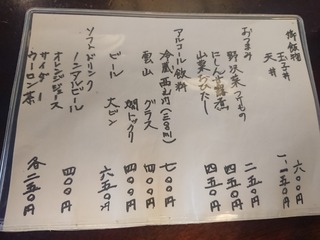 御飯物
玉子丼 六〇〇円
天丼 一、一五〇円
おつまみ
野沢菜つけもの 二五〇円
にしん甘露煮 四五〇円
山菜おひたし 四五〇円
アルコール飲料
冷蔵 七〇〇円
雲山 グラス 四〇〇円
燗トックリ 四〇〇円
ビール 大ビン 六五〇円
ソフトドリンク
ノンアルビール 四〇〇円
オレンジジュース
サイダー
ウーロン茶 各二五〇円